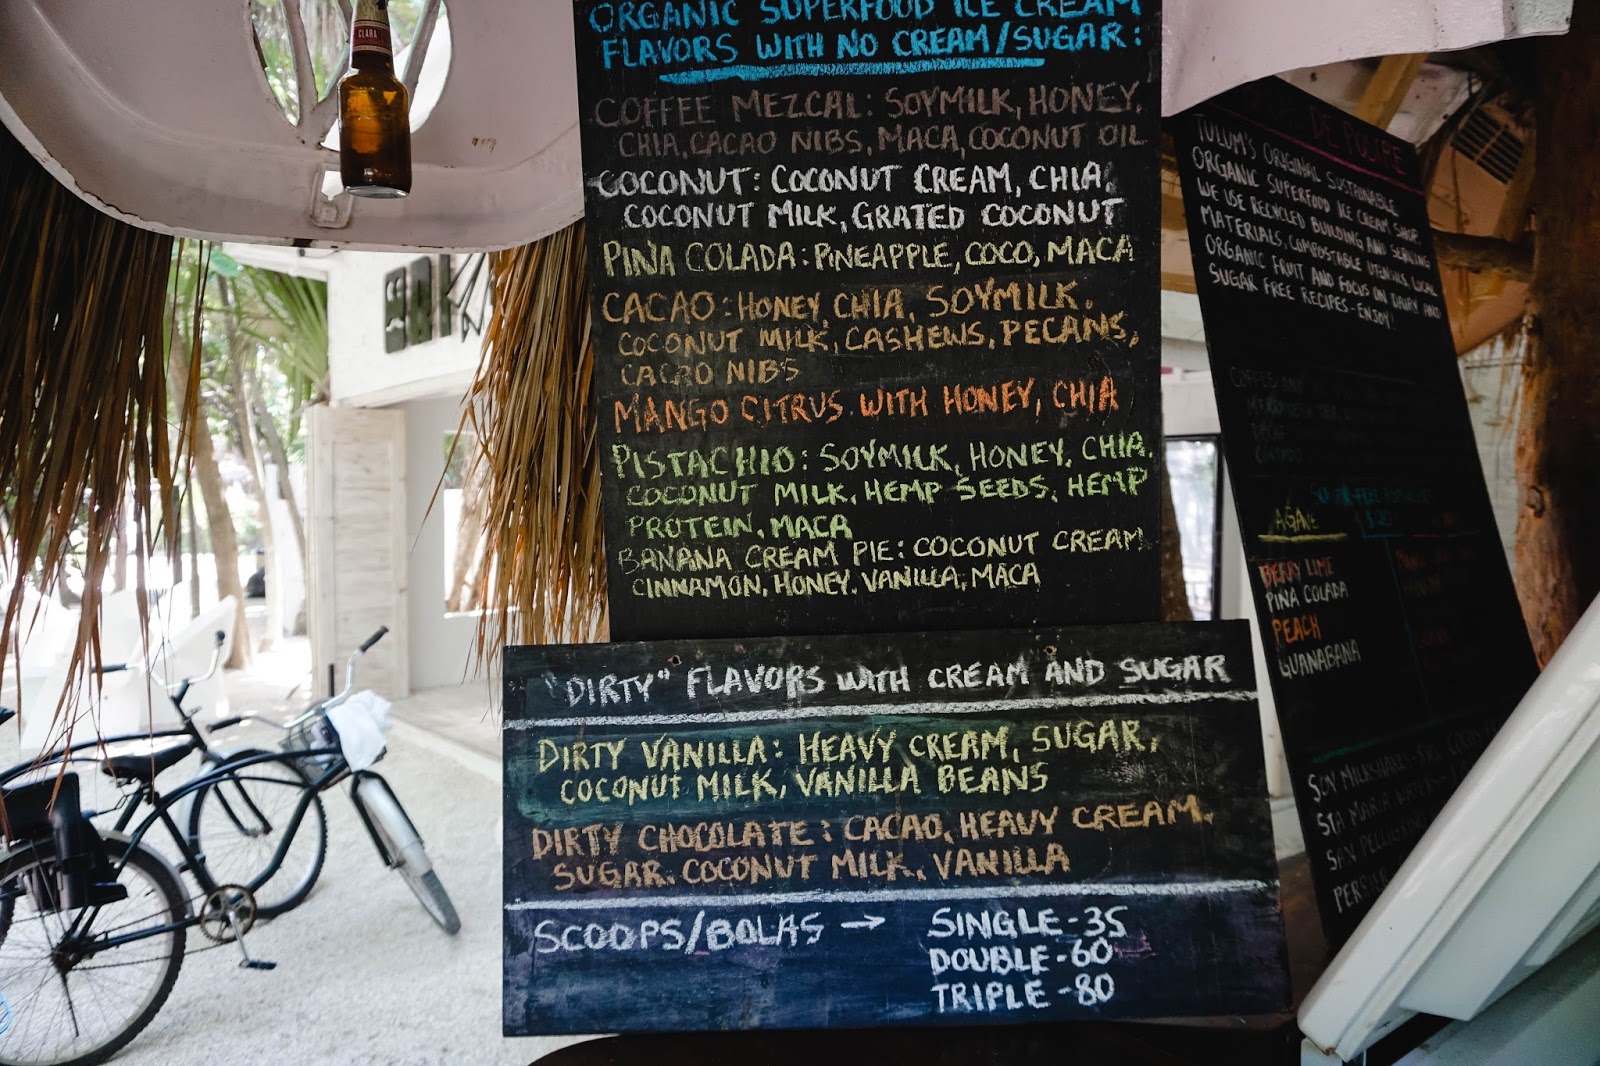 CLARA
ORGANIC SUPERFOOD ICE CREAM
FLAVORS WITH NO CREAM/SUGAR:
COFFEE MEZCAL: SOYMILK, HONEY,
CHIA, CACAO NIBS, MACA, COCONUT OIL
COCONUT: COCONUT CREAM, CHIA,
COCONUT MILK, GRATED COCONUT
PINA COLADA: PINEAPPLE, COCO, MACA
CACAO: HONEY, CHIA, SOYMILK,
COCONUT MILK, CASHEWS, PECANS,
CACAO NIBS
MANGO CITRUS WITH HONEY, CHIA
PISTACHIO: SOYMILK, HONEY, CHIA,
COCONUT MILK, HEMP SEEDS, HEMP
PROTEIN, MACA
BANANA CREAM PIE: COCONUT CREAM
CINNAMON, HONEY, VANILLA, MACA
"DIRTY" FLAVORS WITH CREAM AND SUGAR
DIRTY VANILLA: HEAVY CREAM, SUGAR,
COCONUT MILK, VANILLA BEANS
DIRTY CHOCOLATE: CACAO, HEAVY CREAM,
SUGAR, COCONUT MILK, VANILLA
SCOOPS/BOLAS → SINGLE-35
DOUBLE-60
TRIPLE-80
TULUM'S ORIGINAL SUSTAINABLE
ORGANIC SUPERFOOD ICE CREAM SHOP.
WE USE RECYCLED BUILDING AND SERVING
MATERIALS, COMPOSTABLE UTENSILS, LOCAL
ORGANIC FRUIT AND FOCUS ON DAIRY AND
SUGAR FREE RECIPES-ENJOY!
COFFEE
AGAVE
BERRY LIME
PINA COLADA
PEACH
GUANABANA
SOY MILKSHAKE
STA MARIA WATER
SAN PELLEGRINO